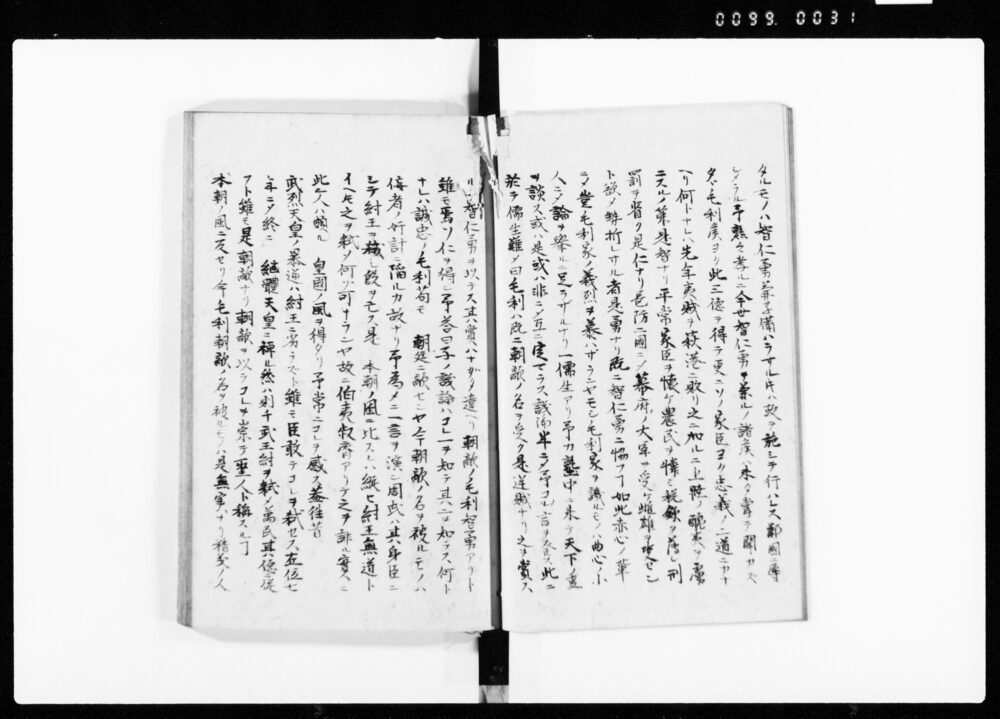 0099.0031
タルモノハ智仁勇兼子備ハラサル片ハ政ヲ施シテ行ハレス鄰國ニ辱
シメラル予熟々考ルニ今世智仁勇ヲ兼ルノ諸侯ハ未タ嘗テ聞カス
タヽ毛利侯ヨリ此三德ヲ得テ更ニソノ家臣ヨリ忠義ノ二道ニカナ
ヘリ何トナレハ先年夷賊ヲ萩港ニ敗リ之ニ加ルニ上陸醜夷ヲ
ニスルノ策是智ナリ平常家臣ヲ懐ケ農民ヲ憐ミ税歛ヲ薄ク刑
罰ヲ省ク是仁ナリ長防二國ニシ幕府ノ大軍ヲ受ケ雌雄ヲセン
ト欲ノ辟折レサル者是勇ナリ既ニ智仁勇ニ協フ丁如此赤心ノ輩
ラン豈毛利家ノ義烈ヲ慕ハザランヤモシ毛利家ヲ譏ルモノハ曲心小
人ニシ論ヲ擧ルニ足ラザルナリ一儒生アリ予カ塾中ニ来テ天下ノ
ヲ談ス或ハ是或ハ非ニシ互ニ定マラス議論半ラ予コレ言ヲ此ニ
於テ儒生難シ曰毛利ハ既ニ朝敵ノ名ヲ受ク是逆賊ナリ之ヲ賞ス
ルニ智仁勇ヲ以テス其賞ハナハダタ違ヘリ朝敵ノ毛利智勇アリト
雖モ焉ソ仁ヲ得ン予答曰子ノ議論ハコレ一ヲ知テ其二ヲ知ラス何ト
ナレハ誠忠ノ毛利苟モ 朝廷ニ敵センヤ今朝敵ノ名ヲ被ルモノハ
侫者ノ奸計ニ陥ルカ故ナリ予為メニ一言ヲ演ン周武ハ其身臣ニ
シテ紂王ヲ殺モス是 本朝ノ風ニ比スレハ縦ヒ紂王無道ト
イヘ圧之ヲ弑ソ何ソ可ナランヤ故ニ伯夷叔齊アリテ之ヲ誹ル實ニ
此人ハ頗ル 皇國ノ風ヲ得タリ予常ニコレヲ感ス蓋往昔
武烈天皇ノ暴逆ハ紂王ニ劣ラスト雖モ臣敢テコレヲ弑セス在位七
年ニシ終ニ 繼體天皇ニ禪ル然ハ則チ武王紂ヲ弑シ萬民其德ニ従
フト雖モ是朝敵ナリ朝敵ヲ以テコレヲ崇テ聖人ト稱スル丁
本朝ノ風ニ反セリ今毛利朝敵ノ名ヲ被ルモノハ是無実ナリ積善ノ人